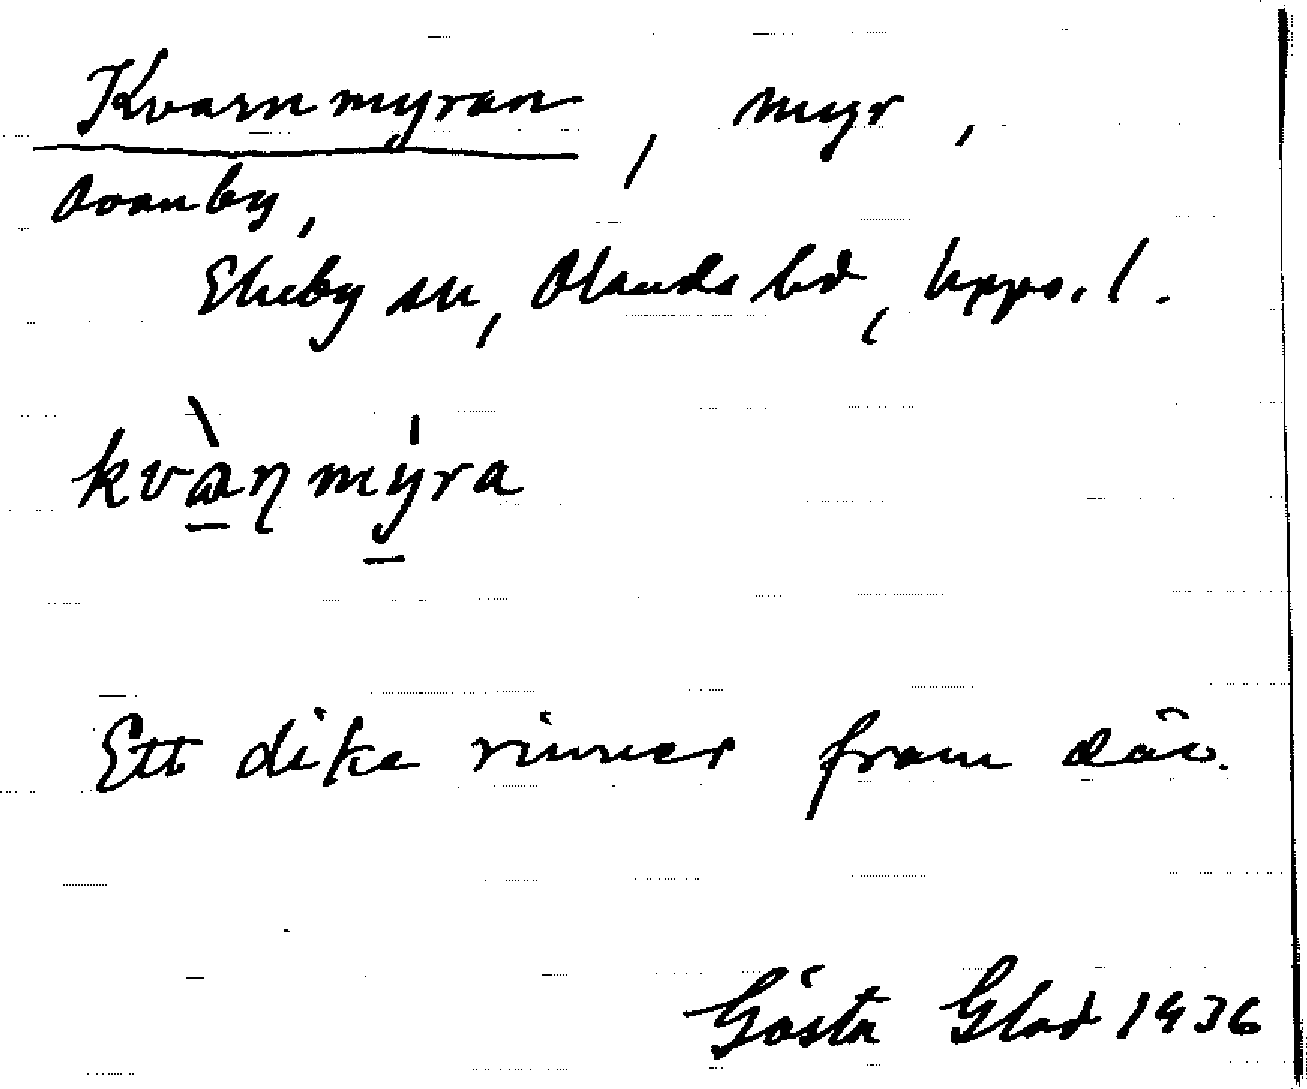 Kvarnmyran, myr,
Ovanby,
Ekeby sn, Olands hd, Upps. l.
kvàṇmýra
Ett dike rinner fram där.
Gösta Glad 1936